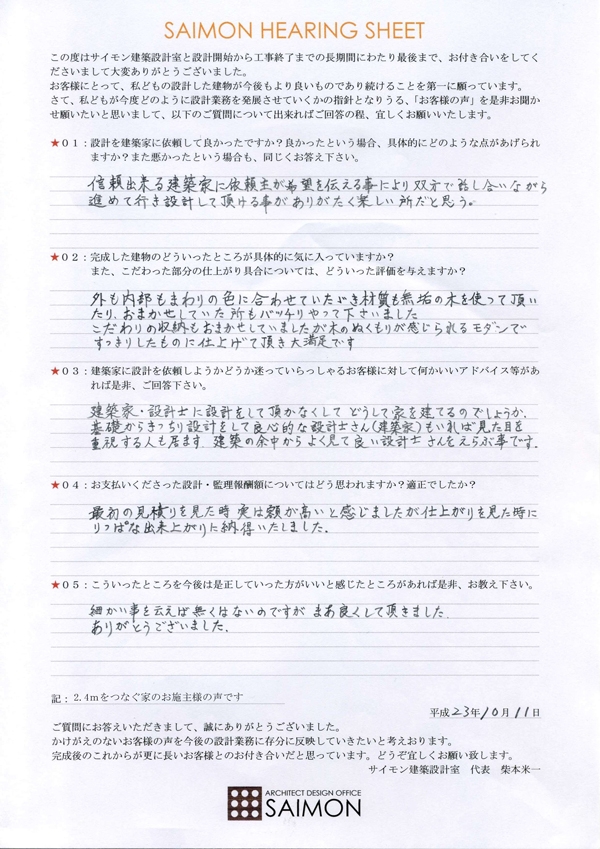 SAIMON HEARING SHEET
この度はサイモン建築設計室と設計開始から工事終了までの長期間にわたり最後まで、お付き合いをしてく
ださいまして大変ありがとうございました。
お客様にとって、私どもの設計した建物が今後もより良いものであり続けることを第一に願っています。
さて、私どもが今度どのように設計業務を発展させていくかの指針となりうる、「お客様の声」を是非お聞か
せ願いたいと思いまして、以下のご質問について出来ればご回答の程、宜しくお願いいたします。
★01：設計を建築家に依頼して良かったですか？良かったという場合、具体的にどのような点があげられ
ますか？また悪かったという場合も、同じくお答え下さい。
信頼出来る建築家に依頼主が希望を伝える事により双方で話し合いながら
進めて行き設計して頂ける事がありがたく楽しい所だと思う。
★02：完成した建物のどういったところが具体的に気に入っていますか？
また、こだわった部分の仕上がり具合については、どういった評価を与えますか？
外も内部もまわりの色に合わせていただき材質も無垢の木を使って頂い
たり、おまかせしていた所もバッチリやって下さいました
こだわりの収納もおまかせしていましたが木のぬくもりが感じられるモダンで
すっきりしたものに仕上げて頂き大満足です
★03：建築家に設計を依頼しようかどうか迷っていらっしゃるお客様に対して何かいいアドバイス等があ
れば是非、ご回答下さい。
建築家・設計士に設計をして頂かなくして どうして家を建てるのでしょうか.
基礎からきっちり設計をして良心的な設計士さん(建築家)もいれば見た目を
重視する人も居ます. 建築の余中からよく見て良い設計士さんをえらぶ事です.
★04：お支払いくださった設計・監理報酬額についてはどう思われますか？適正でしたか？
最初の見積りを見た時 実は額が高いと感じましたが仕上がりを見た時に
りっぱな出来上がりに納得いたしました.
★05：こういったところを今後は是正していった方がいいと感じたところがあれば是非、お教え下さい。
細かい事を云えば無くはないのですが まあ良くして頂きました.
ありがとうございました.
記：2.4mをつなぐ家のお施主様の声です
平成23年10月11日
ご質問にお答えいただきまして、誠にありがとうございました。
かけがえのないお客様の声を今後の設計業務に存分に反映していきたいと考えております。
完成後のこれからが更に長いお客様とのお付き合いだと思っています。どうぞ宜しくお願い致します。
サイモン建築設計室　代表　柴本米一
ARCHITECT DESIGN OFFICE
SAIMON